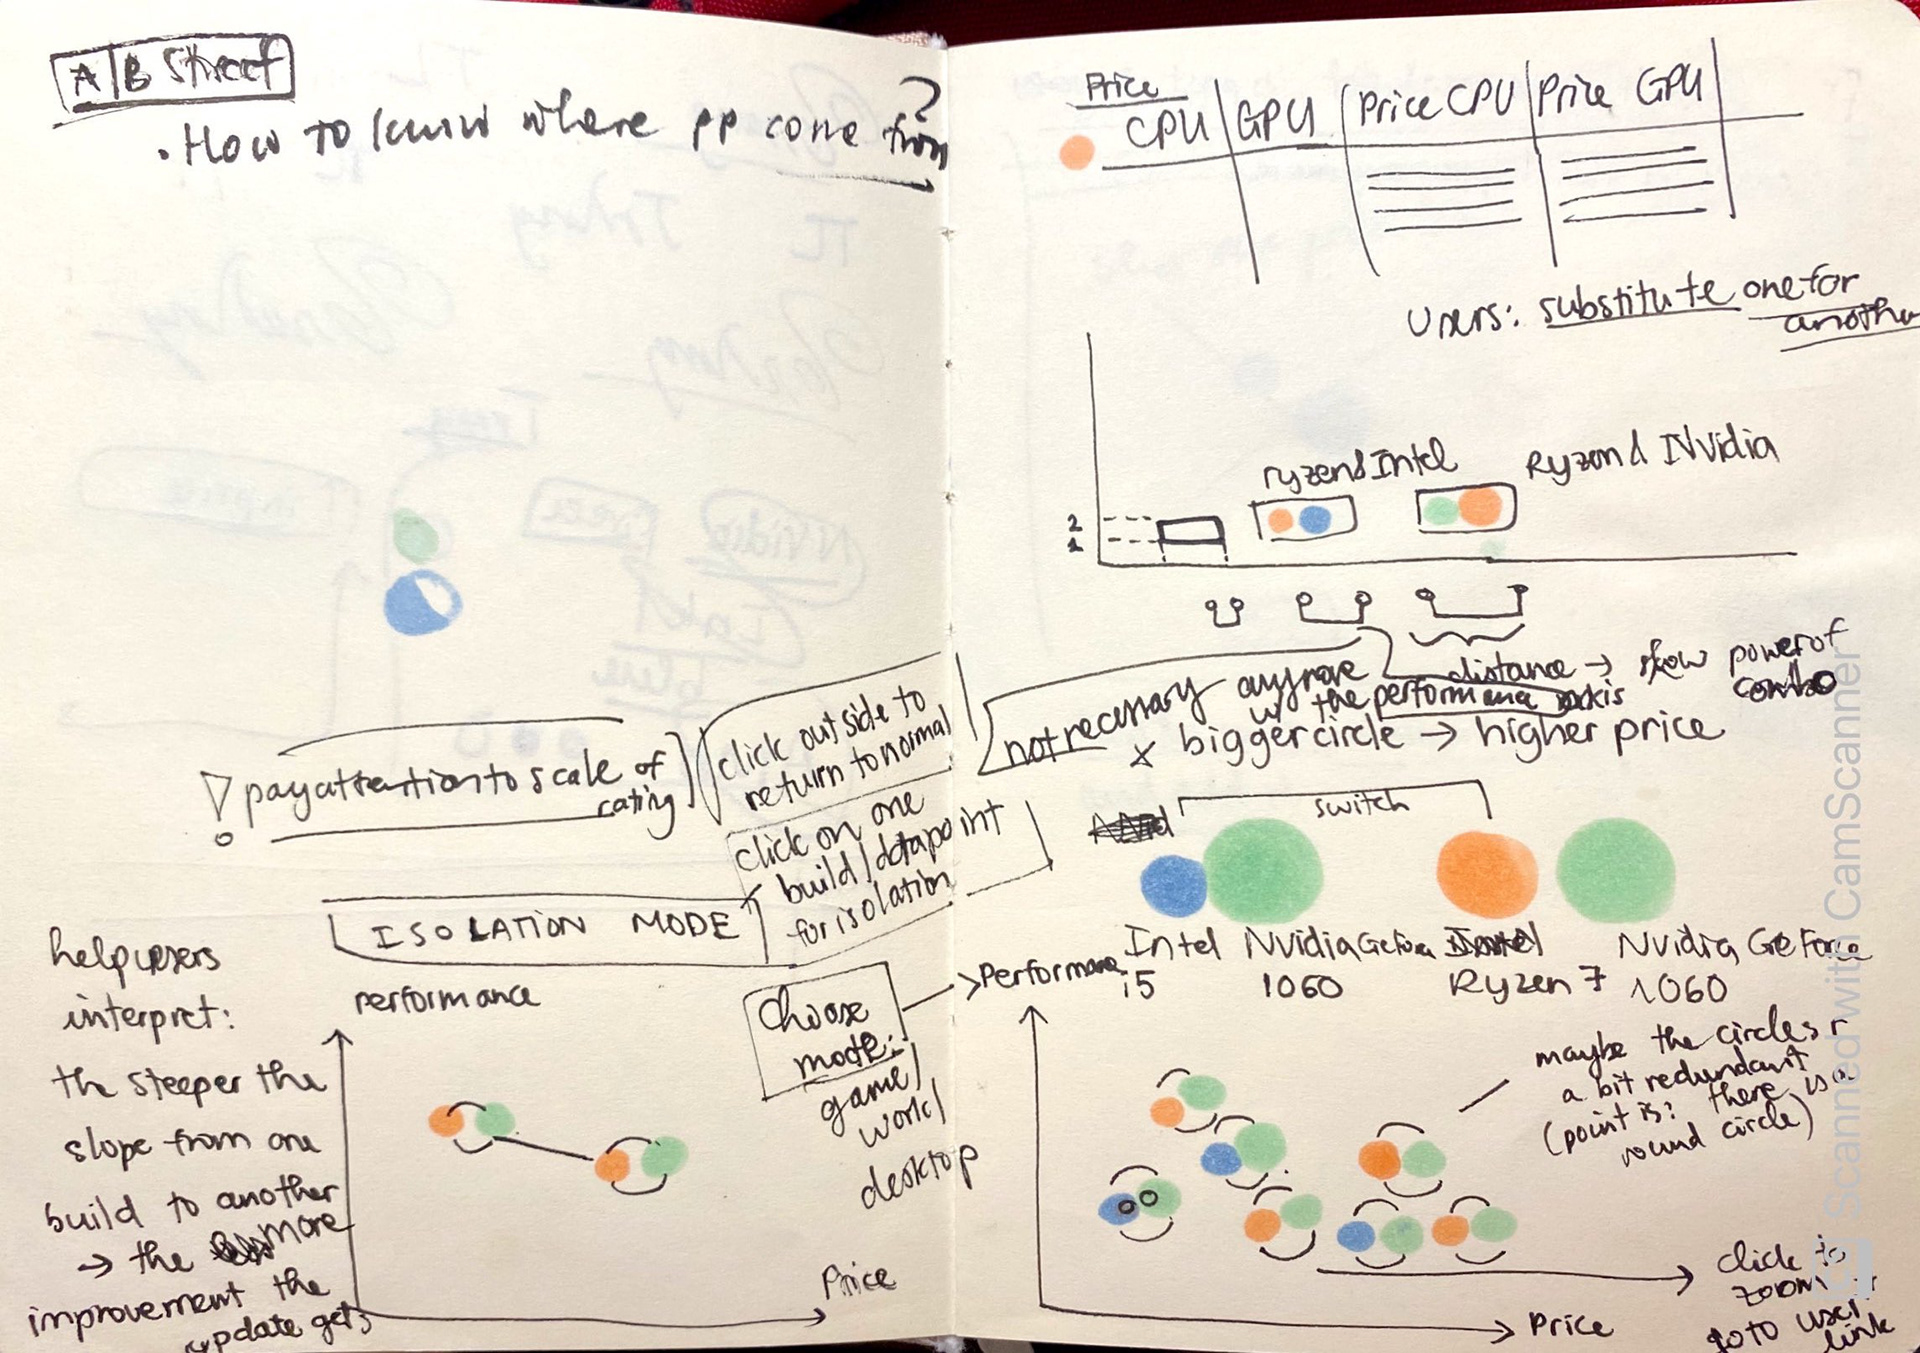 A|B Street
• How to know where pp come from?
! pay attention to scale of
rating
click outside to
return to normal
click on one
build/datapoint
for isolation
ISOLATION MODE
help users
interpret:
the steeper the
slope from one
build to another
→ the more
improvement the
update gets
performance
Price
Choose
mode:
game/
work/
desktop
Price
CPU | GPU | Price CPU | Price GPU
Users: substitute one for
another
ryzen & Intel
Ryzen & NVidia
2
1
distance → show power of
combo
not necessary anymore
w/ the performance axis
x bigger circle → higher price
switch
Intel
i5
NVidia GeForce
1060
Ryzen 7
NVidia GeForce
1060
Performance
maybe the circles r
a bit redundant
(point is: there is a
round circle)
click to
zoom
go to user
link
Price
Scanned with CamScanner